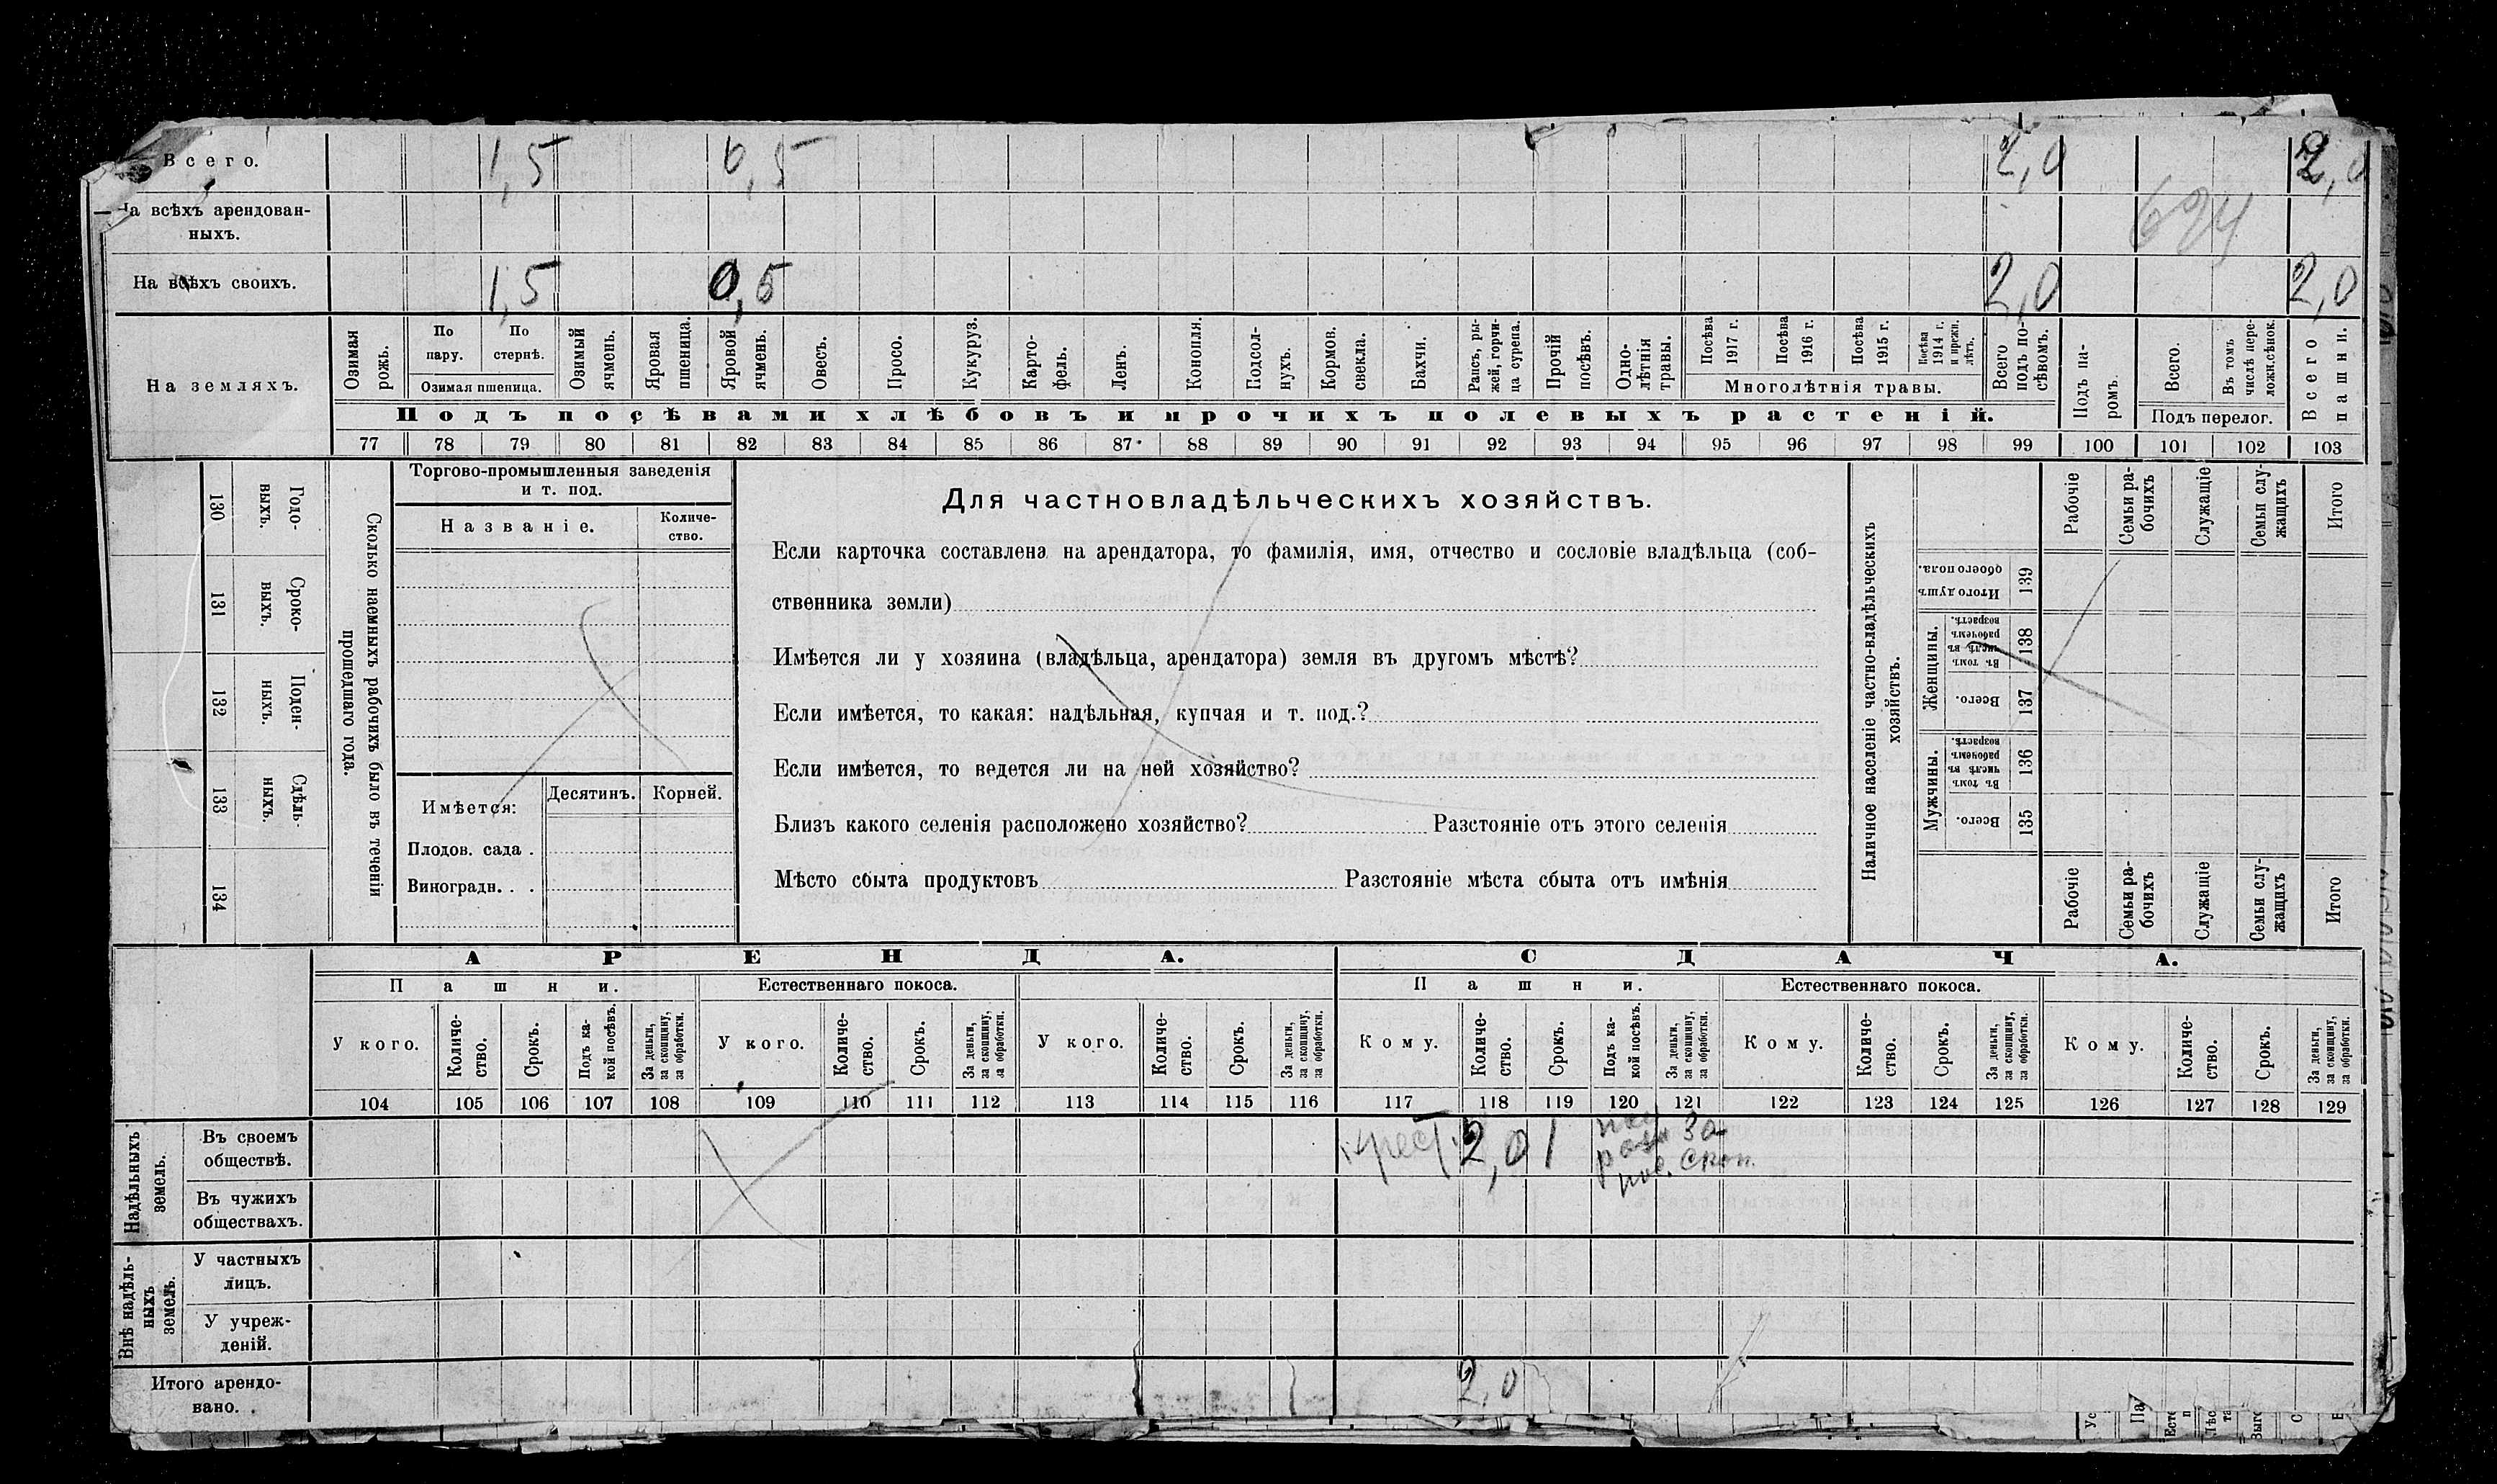 Всего. 1,5 0,5 2,0 2,0
На всѣхъ арендован-
ныхъ.
694
На всѣхъ своихъ. 1,5 0,5 2,0 2,0
На земляхъ.
Озимая рожь.
По пару.
По стернѣ.
Озимая пшеница.
Озимый ячмень.
Яровая пшеница.
Яровой ячмень.
Овесъ.
Просо.
Кукуруз.
Карто-
фель.
Ленъ.
Конопля.
Подсол-
нухъ.
Кормов.
свекла.
Бахчи.
Рапсъ, ры-
жей, горчи-
ца сурепа.
Прочій
посѣвъ.
Одно-
лѣтнія
травы.
Посѣва
1917 г.
Посѣва
1916 г.
Посѣва
1915 г.
Посѣва
1914 г.
и прежн.
лѣтъ.
Многолѣтнія травы.
Всего
подъ по-
сѣвомъ.
Подъ па-
ромъ.
Всего.
Въ томъ
числѣ пере-
ложн.сѣнок.
Подъ перелог.
Всего
пашни.
Подъ посѣвами хлѣбовъ и прочихъ полевыхъ растеній.
77 78 79 80 81 82 83 84 85 86 87 88 89 90 91 92 93 94 95 96 97 98 99 100 101 102 103
130
Годо-
выхъ.
131
Сроко-
выхъ.
132
Поден-
ныхъ.
133
Сдѣль-
ныхъ.
134
Сколько наемныхъ рабочихъ было въ теченіи
прошедшаго года.
Торгово-промышленныя заведенія
и т. под.
Названіе.
Количе-
ство.
Имѣется: Десятинъ. Корней.
Плодов. сада .
Виноградн. . .
Для частновладѣльческихъ хозяйствъ.
Если карточка составлена на арендатора, то фамилія, имя, отчество и сословіе владѣльца (соб-
ственника земли)
Имѣется ли у хозяина (владѣльца, арендатора) земля въ другомъ мѣстѣ?
Если имѣется, то какая: надѣльная, купчая и т. под.?
Если имѣется, то ведется ли на ней хозяйство?
Близъ какого селенія расположено хозяйство? Разстояніе отъ этого селенія
Мѣсто сбыта продуктовъ Разстояніе мѣста сбыта отъ имѣнія
Наличное населеніе частно-владѣльческихъ
хозяйствъ.
Рабочіе
Семьи ра-
бочихъ
Служащіе
Семьи слу-
жащихъ
Итого
Итого душъ
обоего пола.
139
Женщины.
Въ томъ
числѣ въ
рабочемъ
возрастѣ.
138
Всего.
137
Мужчины.
Въ томъ
числѣ въ
рабочемъ
возрастѣ.
136
Всего.
135
Рабочіе
Семьи ра-
бочихъ
Служащіе
Семьи слу-
жащихъ
Итого
АРЕНДА. СДАЧА.
Пашни. Естественнаго покоса. Пашни. Естественнаго покоса.
У кого.
Количе-
ство.
Срокъ.
Подъ ка-
кой посѣвъ.
За деньги,
за скопщину,
за обработки.
У кого.
Количе-
ство.
Срокъ.
За деньги,
за скопщину,
за обработки.
У кого.
Количе-
ство.
Срокъ.
За деньги,
за скопщину,
за обработки.
Кому.
Количе-
ство.
Срокъ.
Подъ ка-
кой посѣвъ.
За деньги,
за скопщину,
за обработки.
Кому.
Количе-
ство.
Срокъ.
За деньги,
за скопщину,
за обработки.
Кому.
Количе-
ство.
Срокъ.
За деньги,
за скопщину,
за обработки.
104 105 106 107 108 109 110 111 112 113 114 115 116 117 118 119 120 121 122 123 124 125 126 127 128 129
Надѣльныхъ
земель.
Въ своемъ
обществѣ.
крест. 2,0 1 За
скоп.
Въ чужихъ
обществахъ.
Внѣ надѣль-
ныхъ
земель.
У частныхъ
лицъ.
У учреж-
деній.
Итого арендо-
вано. 2,0